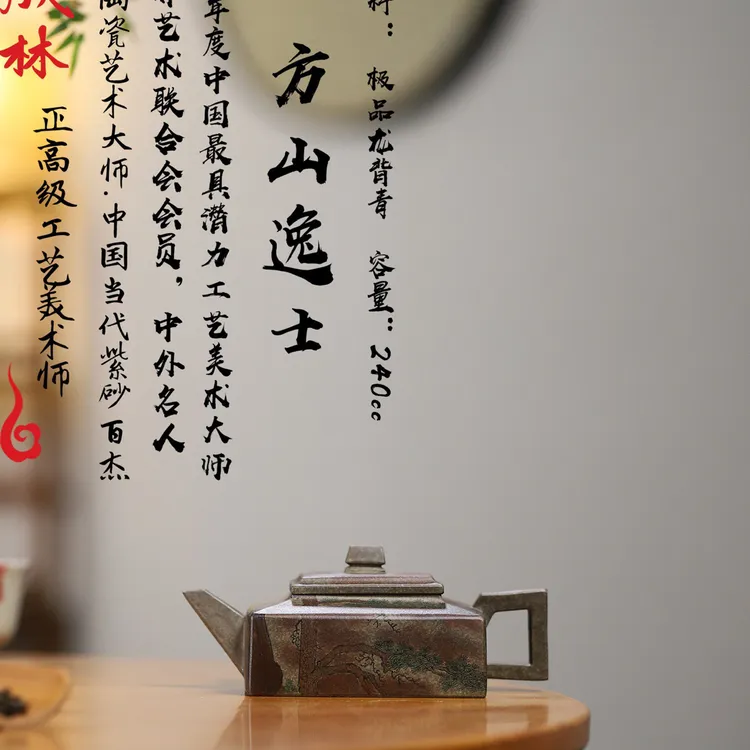 料：极品龙背青 容量：240cc
方山逸士
年度中国最具潜力工艺美术大师
艺术联合会会员，中外名人
陶瓷艺术大师·中国当代紫砂百杰
正高级工艺美术师
林